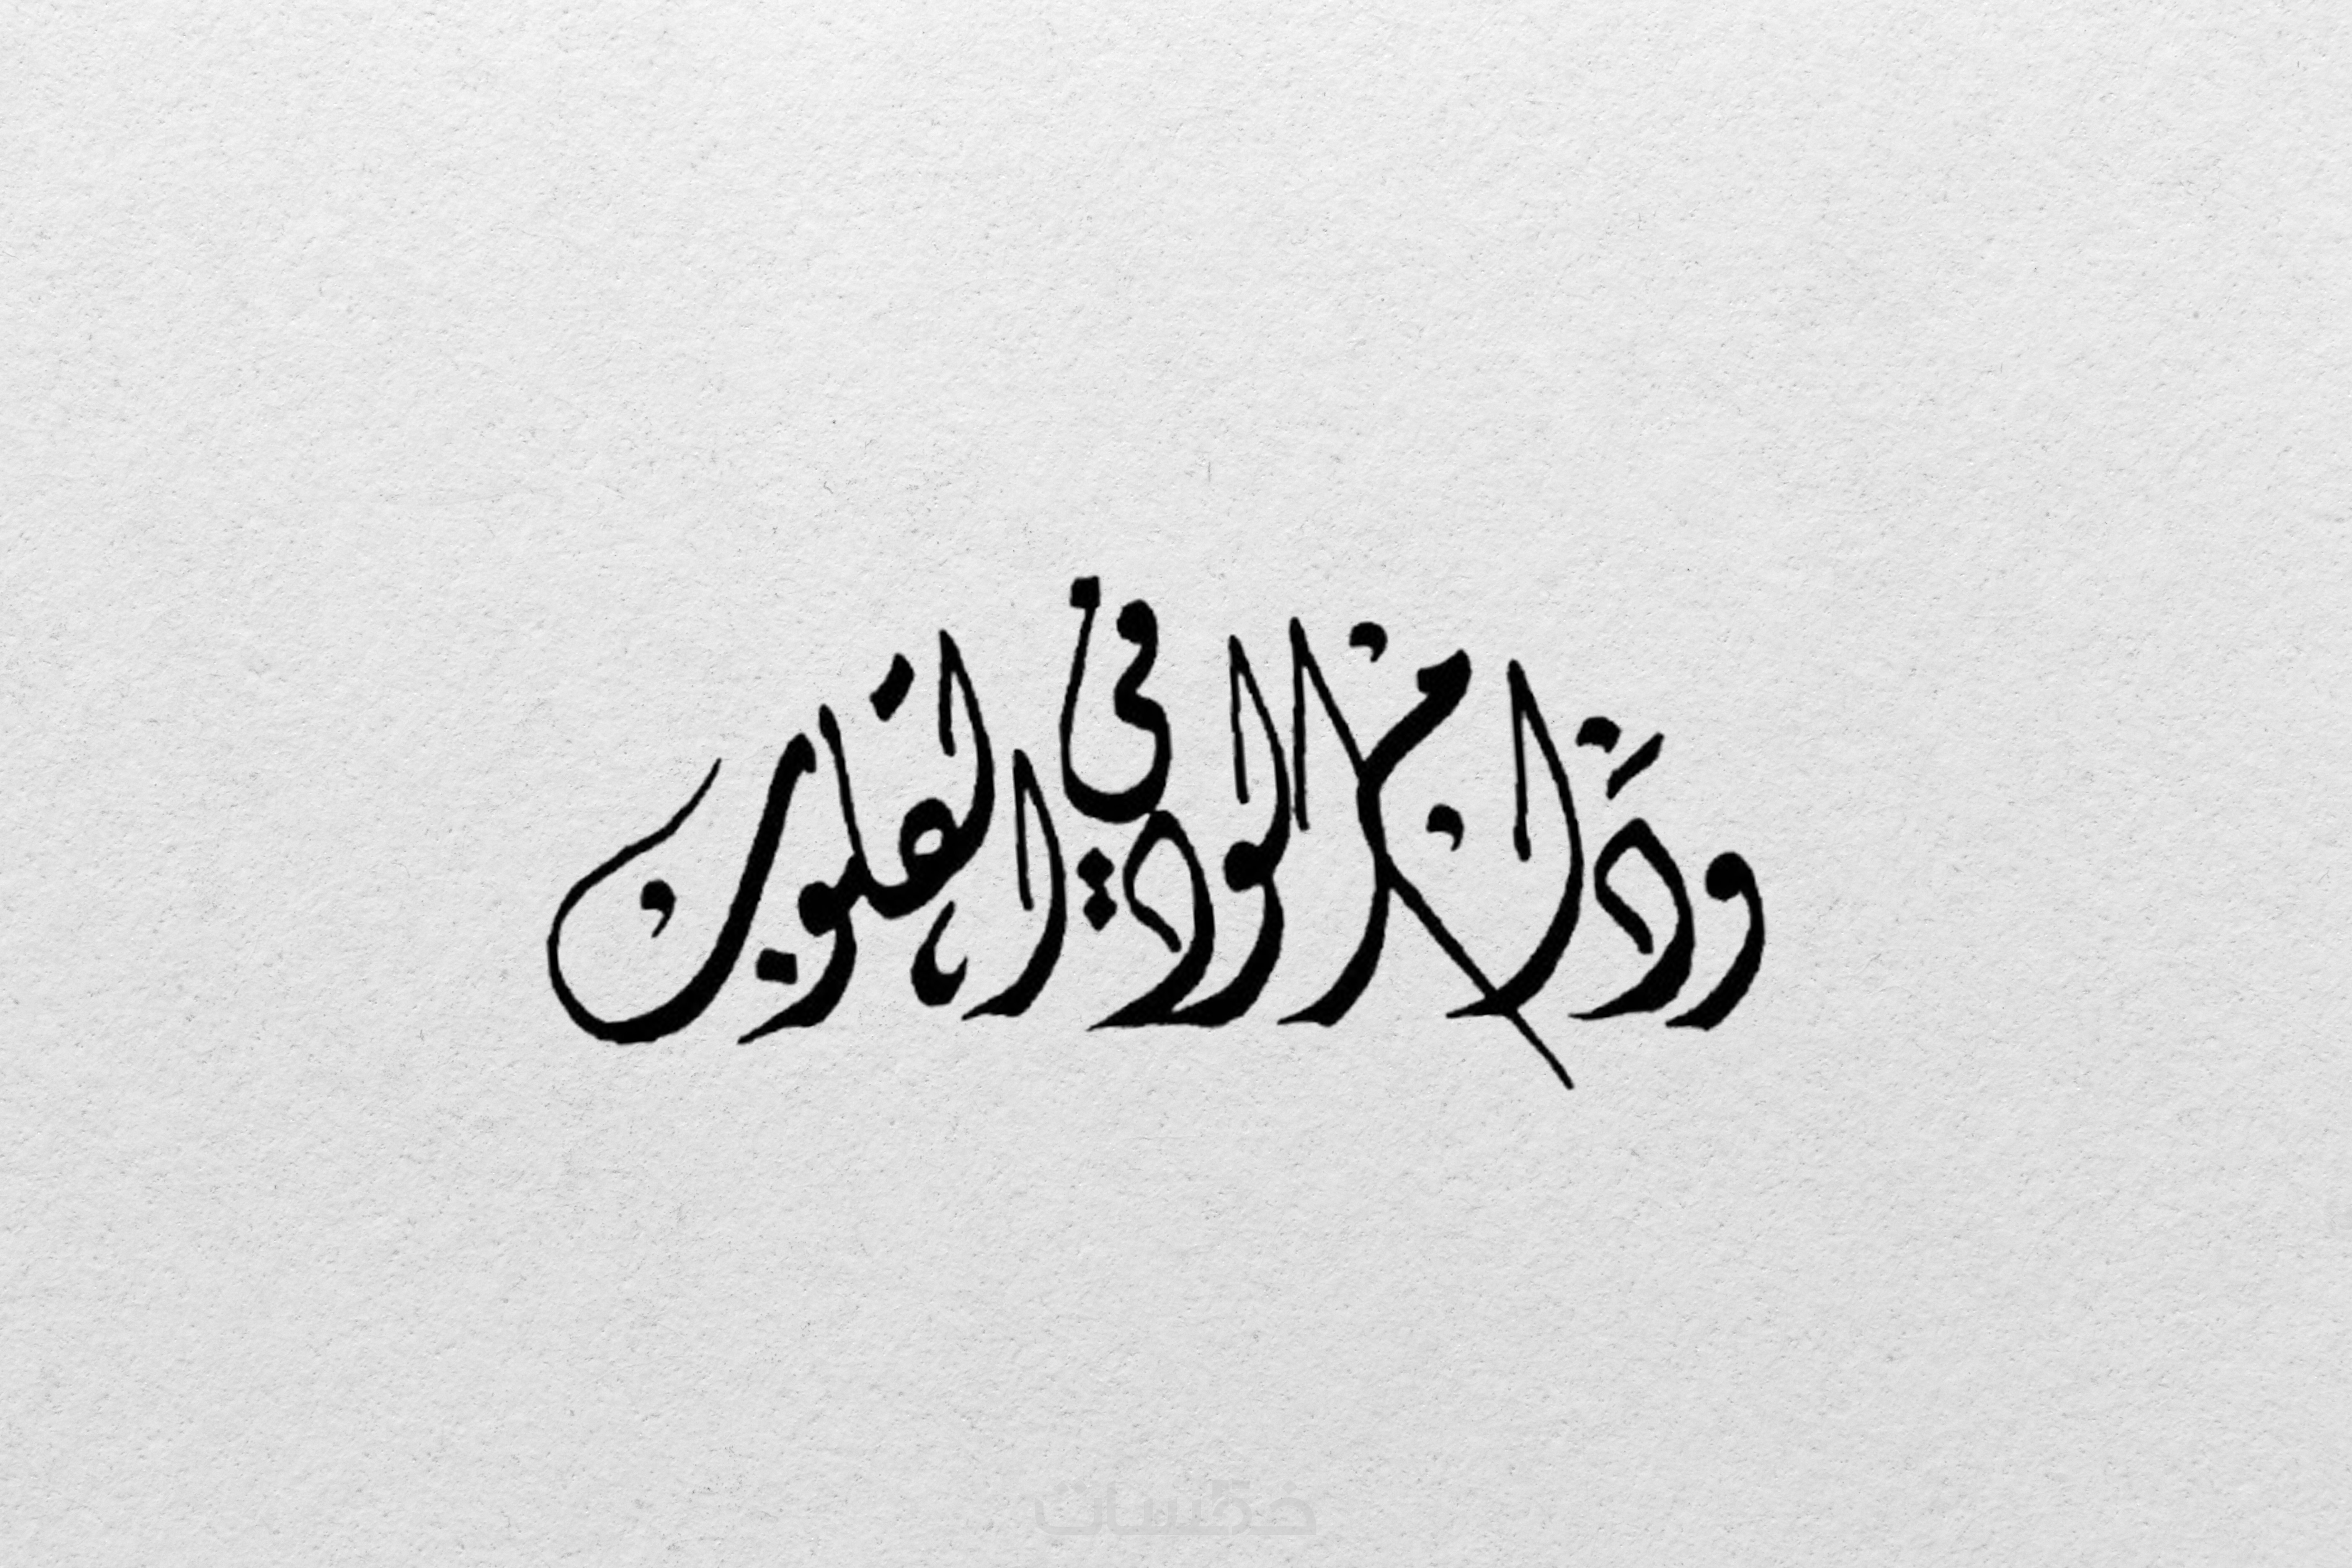 ودام الود في القلوب
خمسات